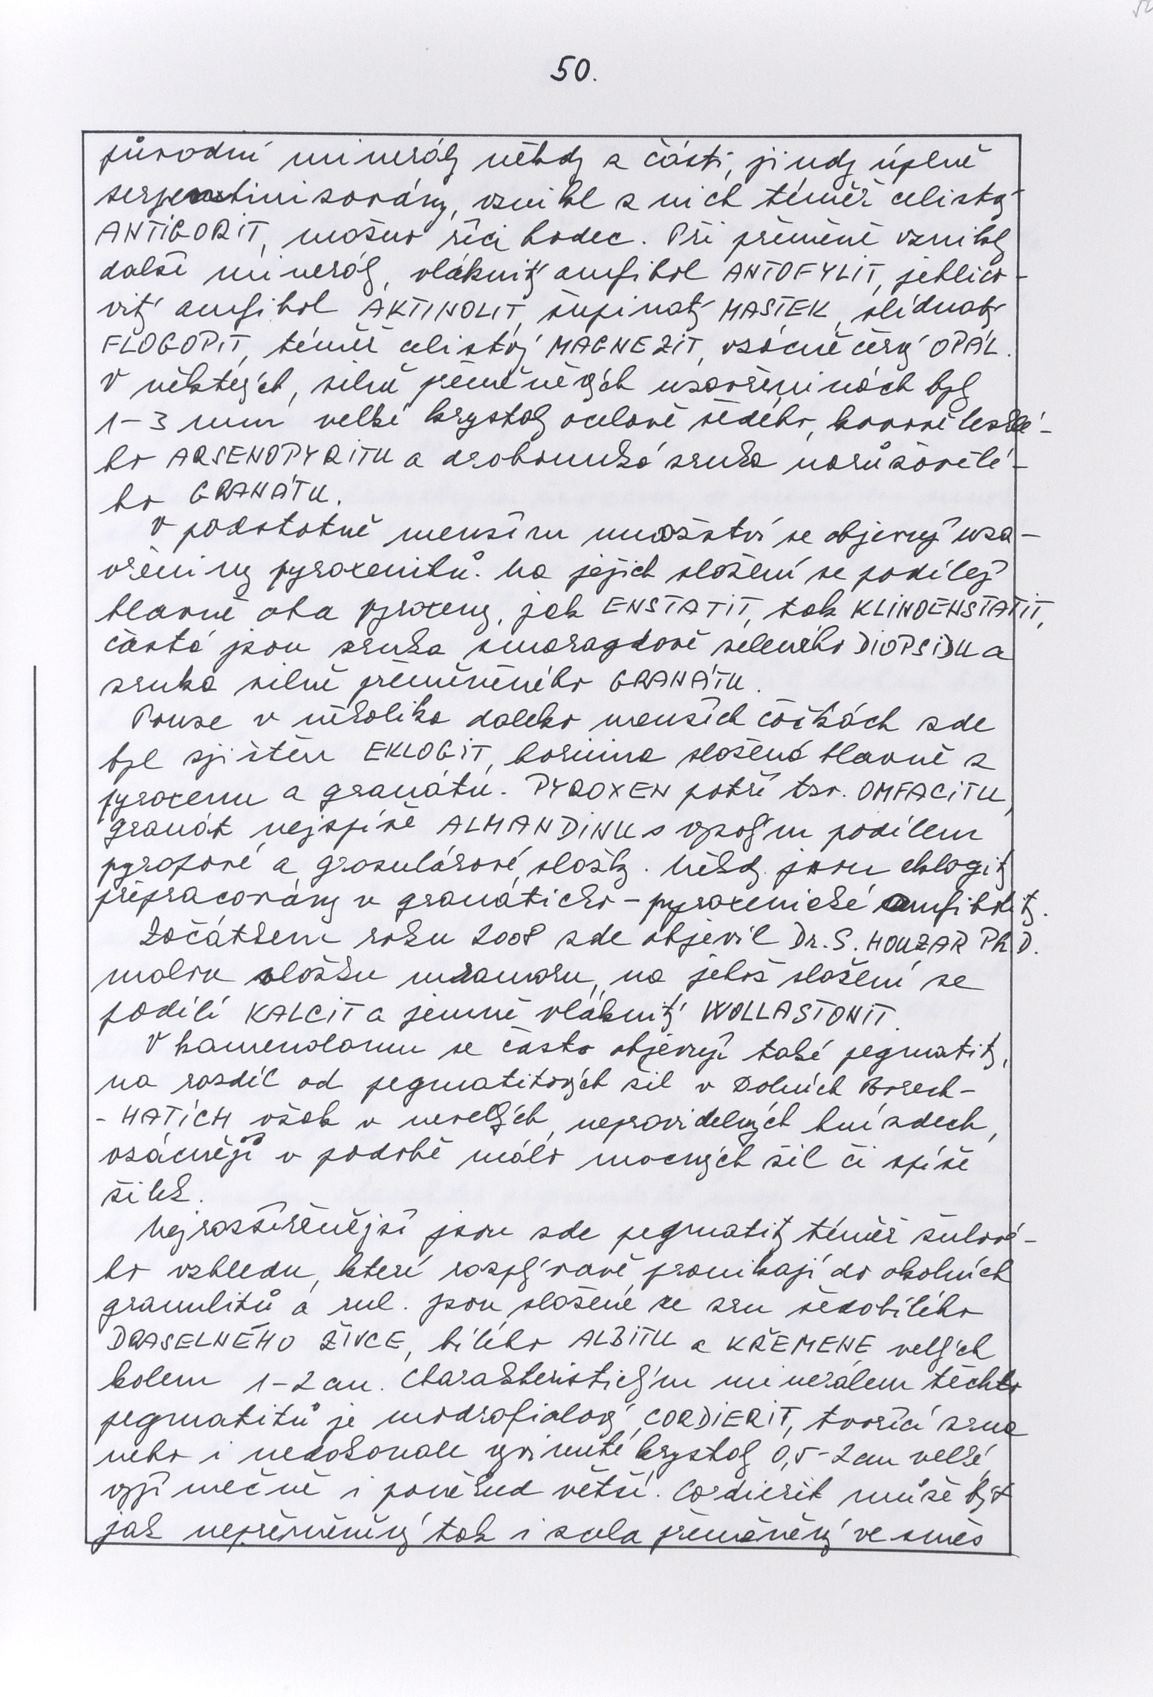 50.
původní minerály někdy z části, jindy úplně
serpentinisovány, vznikl z nich téměř celistvý
ANTIGORIT, možno říci hadec. Při přeměně vznikly
další minerály, vláknitý amfibol ANTOFYLIT, jehlico-
vitý amfibol AKTINOLIT, šupinatý MASTEK, slídnatý
FLOGOPIT, téměř celistvý MAGNEZIT, vzácně černý OPÁL.
V některých, silně přeměněných uzavřeninách byly
1-3 mm velké krystaly ocelově šedého, kovově lesklé-
ho ARSENOPYRITU a drobounká zrnka narůžovělé-
ho GRANÁTU.
V podstatně menším množství se objevují uza-
vřeniny pyroxenitů. Na jejich složení se podílejí
hlavně oba pyroxeny, jak ENSTATIT, tak KLINOENSTATIT,
častá jsou zrnka smaragdově zeleného DIOPSIDU a
zrnka silně přeměněného GRANÁTU.
Pouze v několika daleko menších čočkách zde
byl zjištěn EKLOGIT, hornina složená hlavně z
pyroxenu a granátu. PYROXEN patří tzv. OMFACITU,
granát nejspíše ALMANDINU s vysokým podílem
pyropové a grosulárové složky. Někdy jsou eklogity
přepracovány v granáticko-pyroxenické amfibolity.
Začátkem roku 2008 zde objevil Dr. S. HOUZAR Ph.D.
malou vložku mramoru, na jehož složení se
podílí KALCIT a jemně vláknitý WOLLASTONIT.
V kamenolomu se často objevují také pegmatity,
na rozdíl od pegmatitových žil v Dolních Borech-
-HATÍCH však v nevelkých, nepravidelných hnízdech,
vzácněji v podobě málo mocných žil či spíše
žilek.
Nejrozšířenější jsou zde pegmatity téměř žulové-
ho vzhledu, které rozplývavě pronikají do okolních
granulitů a rul. Jsou složené ze zrn šedobílého
DRASELNÉHO ŽIVCE, bílého ALBITU a KŘEMENE velkých
kolem 1-2 cm. Charakteristickým minerálem těchto
pegmatitů je modrofialový CORDIERIT, tvořící zrna
nebo i nedokonale vyvinuté krystaly 0,5-2 cm velké,
vyjímečně i poněkud větší. Cordierit může být
jak nepřeměněný tak i zcela přeměněný ve směs